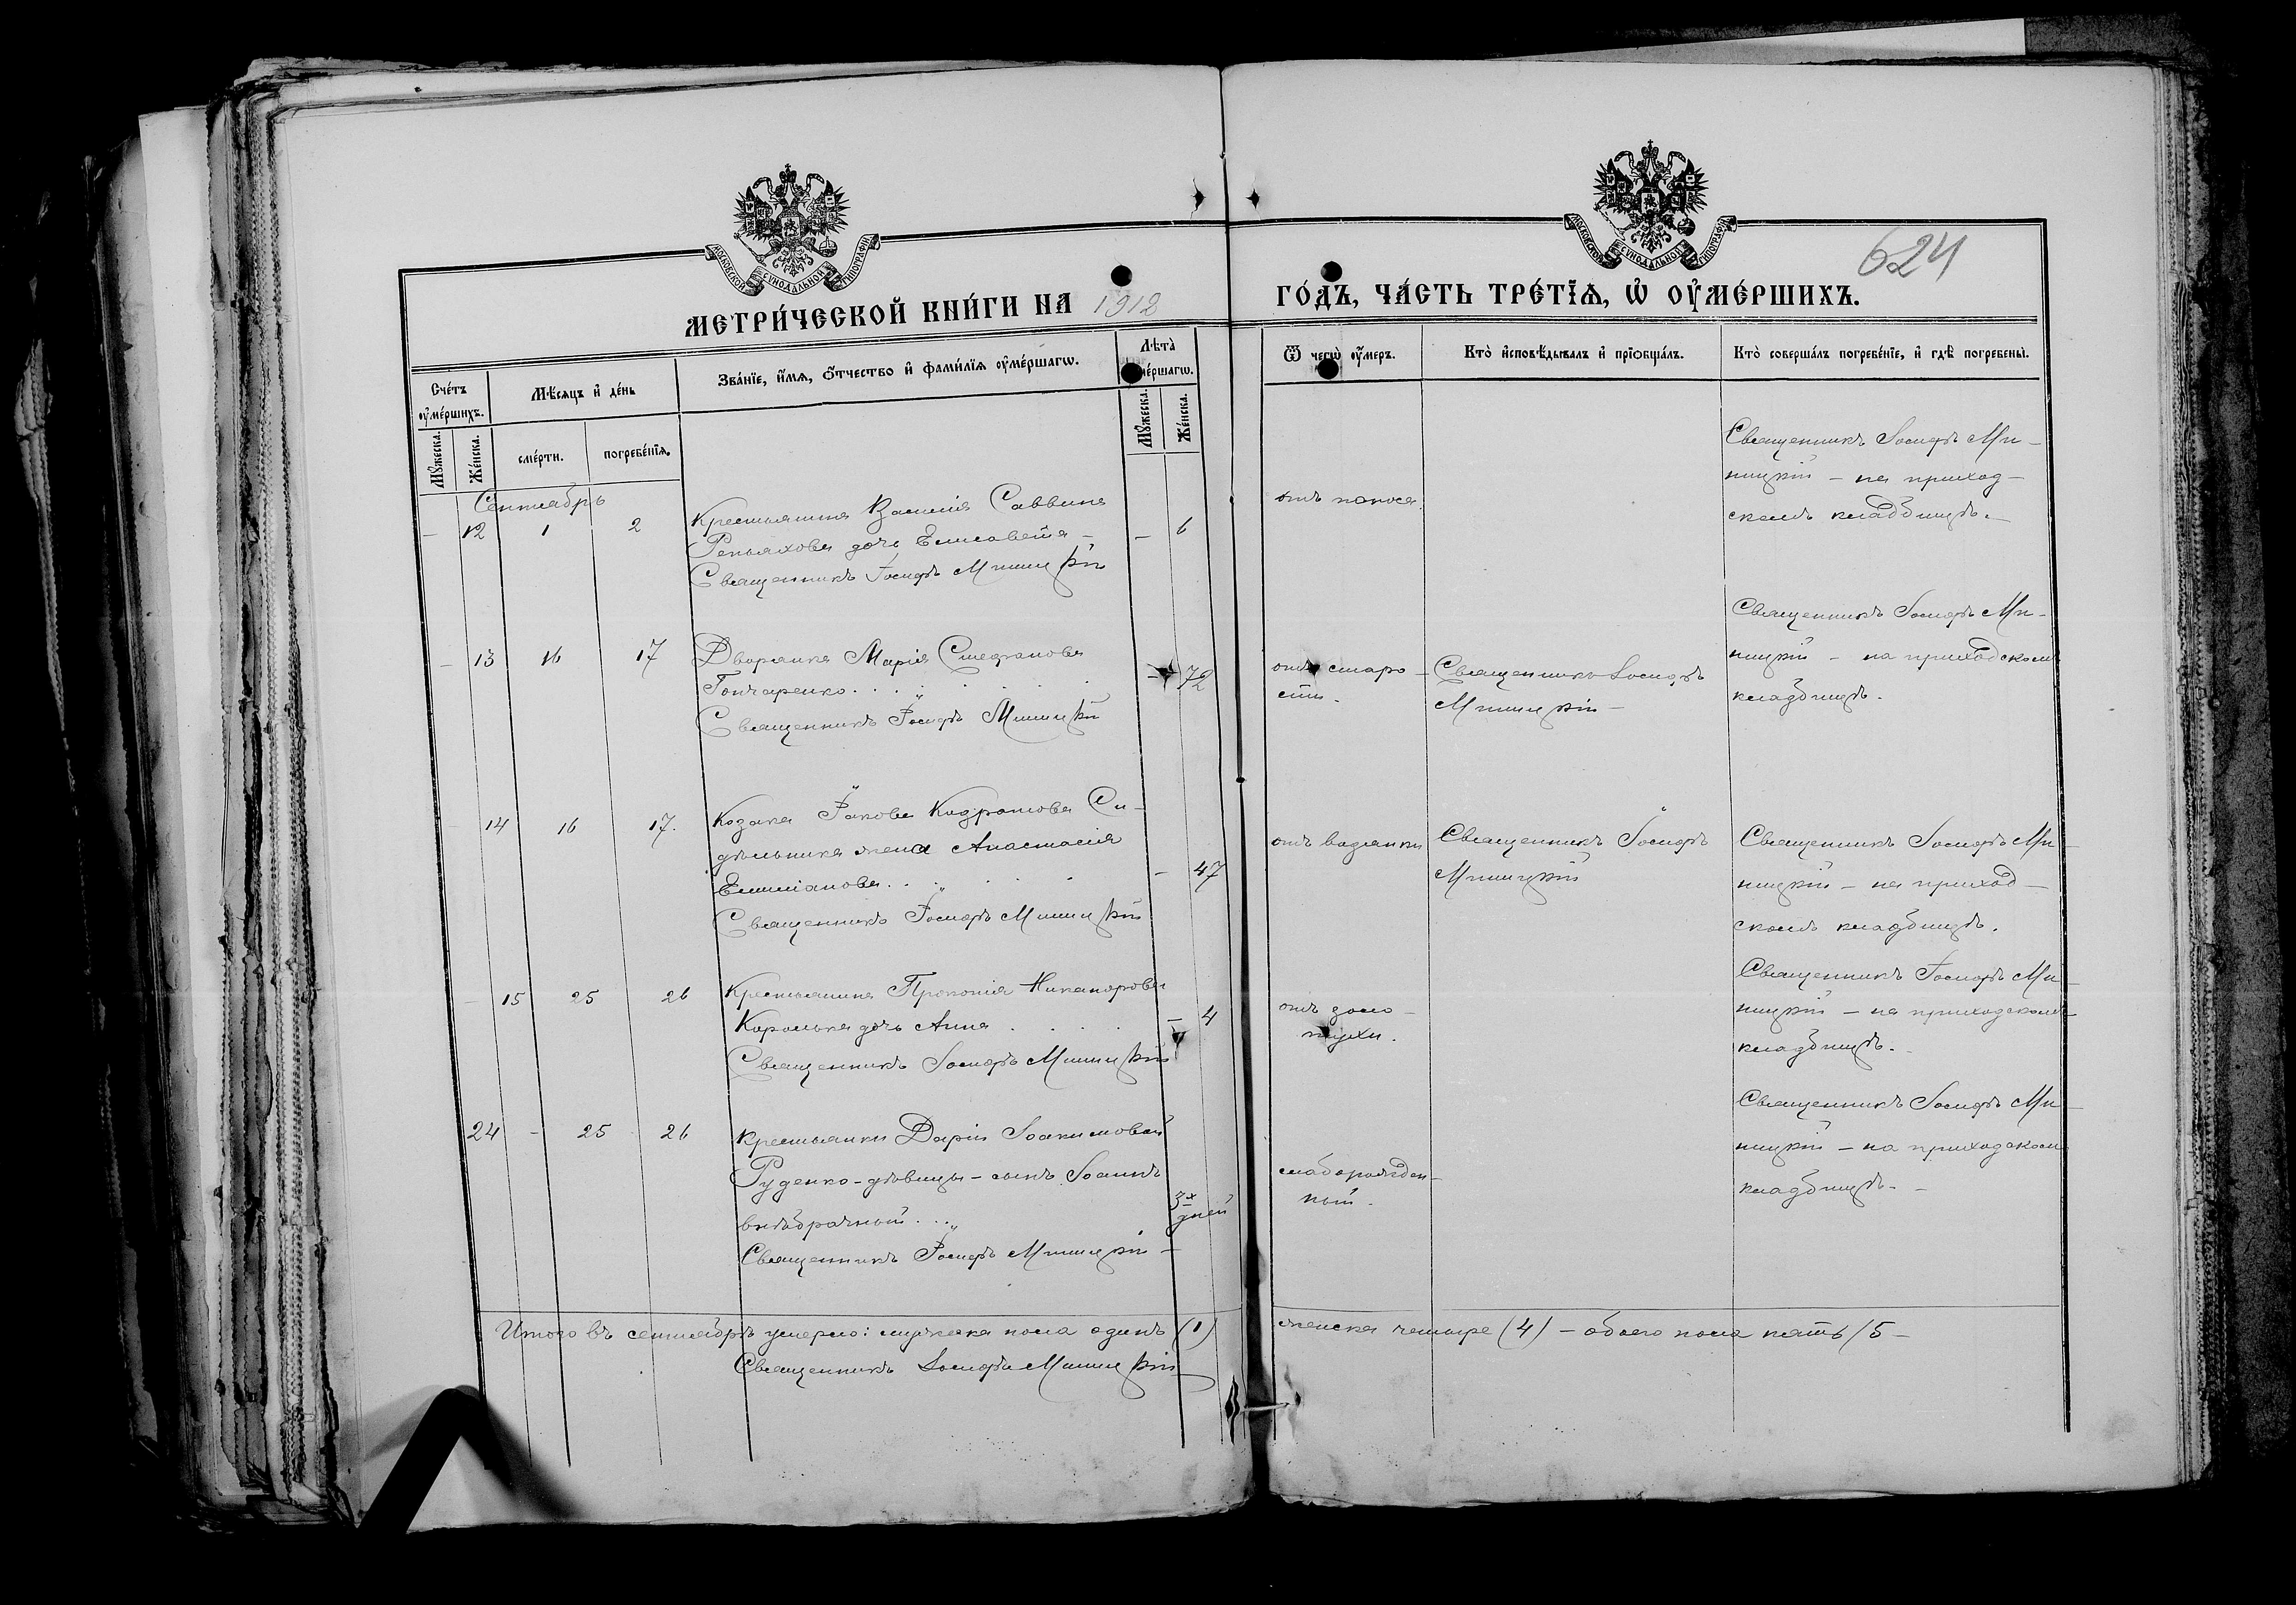 МОСКОВСКОЙ СУНОДАЛЬНОЙ ТИПОГРАФІИ
МОСКОВСКОЙ СУНОДАЛЬНОЙ ТИПОГРАФІИ
624
МЕТРИ́ЧЕСКОЙ КНИ́ГИ НА 1912 ГО́ДЪ, ЧА́СТЬ ТРЕ́ТІѦ, Ѡ҆ ОУ҆МЕ́РШИХЪ.
Сче́тъ оу҆ме́ршихъ.
Мѣ́сяцъ и҆ де́нь
Зва́нїе, и҆́мѧ, ѻ҆́тчество и҆ фами́лїѧ оу҆ме́ршагѡ.
Лѣта̀ оу҆ме́ршагѡ.
Ѿ чегѡ̀ оу҆́меръ.
Кто̀ и҆сповѣ́дывалъ и҆ прїобща́лъ.
Кто̀ соверша́лъ погребе́нїе, и҆ гдѣ̀ погребены̀.
Мꙋ́жеска.
Же́нска.
сме́рти.
погребе́нїѧ.
Мꙋ́жеска.
Же́нска.
Сентябрь
– 12 1 2
Крестьянина Василія Саввина
Репьяхова дочь Елисавета –
Священникъ Іосифъ Миницкій
– 6
отъ поноса.
Священникъ Іосифъ Ми–
ницкій – на приход–
скомъ кладбищѣ. –
– 13 16 17
Дворянка Марія Стефанова
Гончаренко . . .
Священникъ Іосифъ Миницкій
– 72
отъ старо–
сти.
Священникъ Іосифъ
Миницкій –
Священникъ Іосифъ Ми–
ницкій – на приходскомъ
кладбищѣ.
– 14 16 17.
Козака Іакова Кодратова Си–
дѣльника жена Анастасія
Емиліанова . . .
Священникъ Іосифъ Миницкій
– 47
отъ водянки
Священникъ Іосифъ
Миницкій
Священникъ Іосифъ Ми–
ницкій – на приход–
скомъ кладбищѣ.
– 15 25 26
Крестьянина Прокопія Никанорова
Королька дочь Анна . . . .
Священникъ Іосифъ Миницкій
– 4
отъ золо–
тухи.
Священникъ Іосифъ Ми–
ницкій – на приходскомъ
кладбищѣ. –
24 – 25 26
Крестьянки Даріи Іоакимовой
Руденко – дѣвицы – сынъ Іоаннъ
внѣбрачный . . .
Священникъ Іосифъ Миницкій –
3х дней
слаборожден–
ный.
Священникъ Іосифъ Ми–
ницкій – на приходском
кладбищѣ. –
Итого въ сентябрѣ умерло: мужеска пола одинъ (1) женска четыре (4) – обоего пола пять /5 –
Священникъ Іосифъ Миницкій